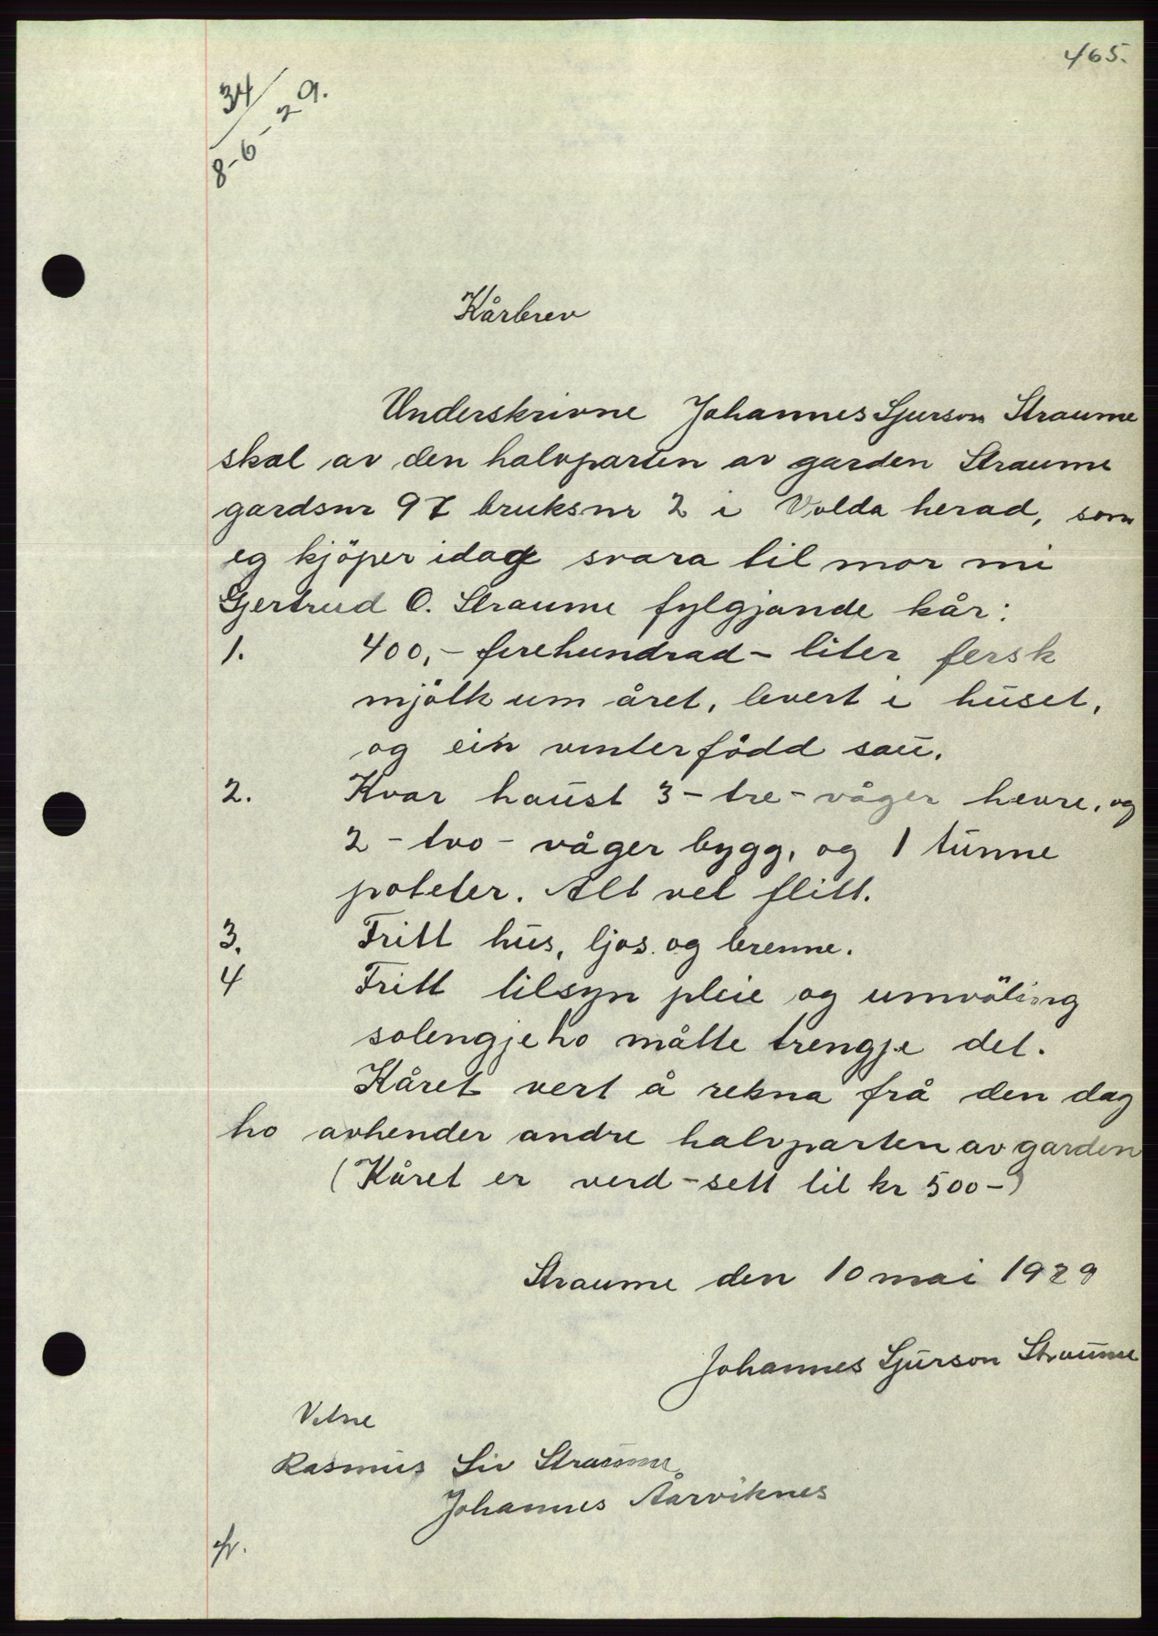 465.
34/8-6-29.
Kårbrev
Underskrivne Johannes Sjurson Straume
skal av den halvparten av garden Straume
gardsnr 97 bruksnr 2 i Volda herad, som
eg kjöper idag svara til mor mi
Gjertrud O. Straume fylgjande kår:
1. 400,- firehundrad - liter fersk
mjölk um året, levert i huset,
og ein vinterfödd sau.
2. Kvar haust 3 - tre - våger havre, og
2 - tvo - våger bygg, og 1 tunne
poteter. Alt vel flitt.
3. Fritt hus, ljos og brenne.
4 Fritt tilsyn pleie og umvöling
solengje ho måtte trengje det.
Kåret vert å rekna frå den dag
ho avhender andre halvparten av garden
(Kåret er verd-sett til kr 500-)
Straume den 10 mai 1929
Johannes Sjurson Straume
Vitne
Rasmus Siv Straume
Johannes Aarviknes